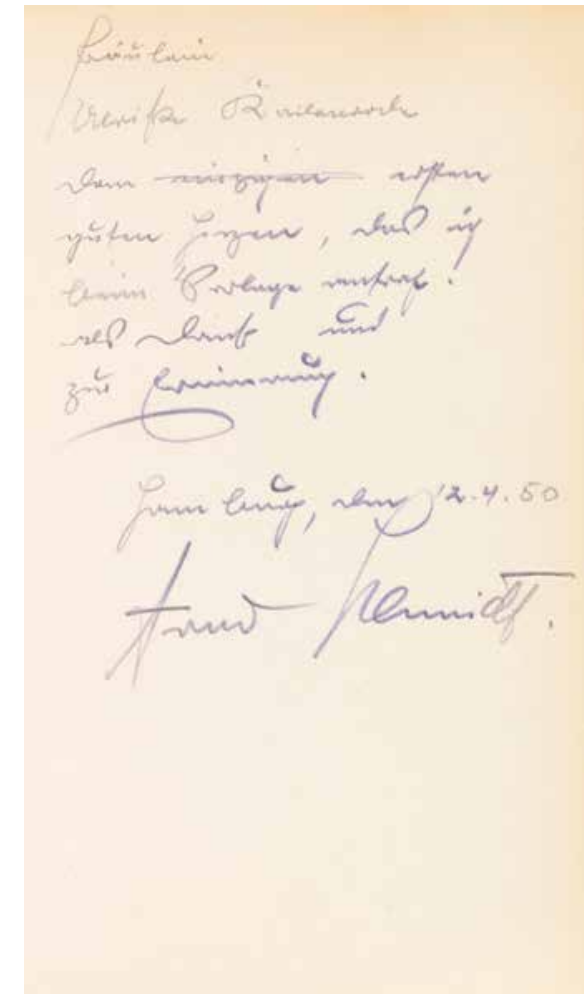 Fräulein
Ulrike
Dem einzigen ersten
guten Herzen, das ich
beim Verlage antraf.
als Dank und
zur Erinnerung.
Hamburg, den 12.4.50
Arno Schmidt.